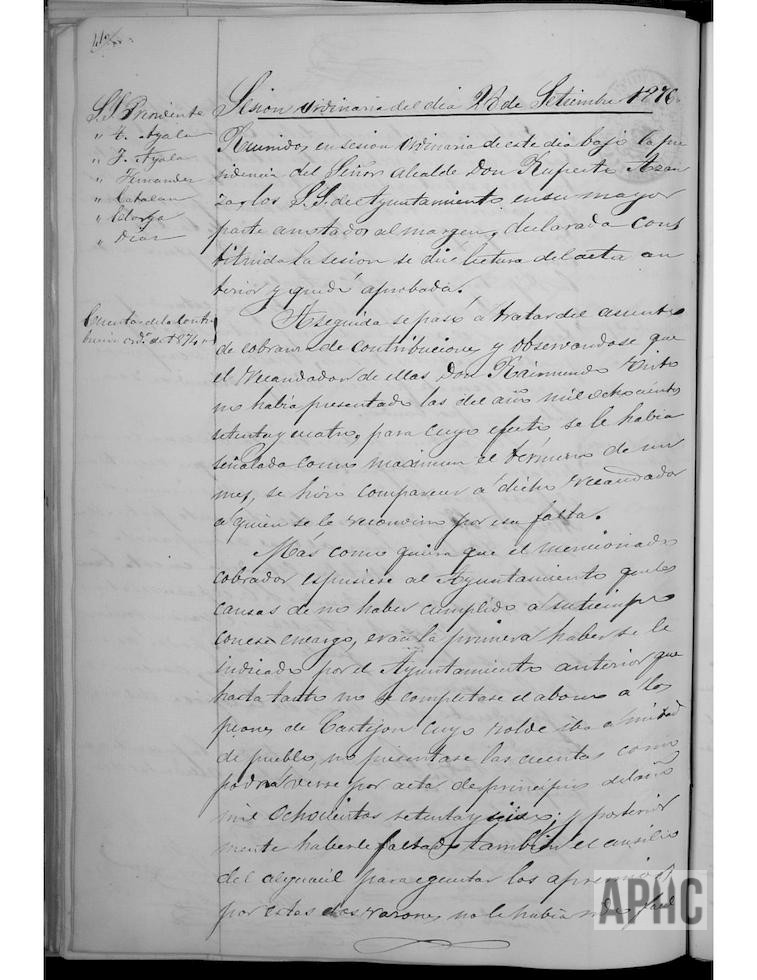 S.S. Presidente
" C. Ayala
" F. Ayala
" Fernandez
" Catalan
" Calonga
" Diaz
Sesion ordinaria del dia 28 de Setiembre 1876
Reunidos en sesion ordinaria de este dia bajo la pre
sidencia del Señor Alcalde Don Ruperto Azan
za los S.S. del Ayuntamiento en su mayor
parte anotados al margen, declarada cons
tituida la sesion se dió lectura del acta an
terior y quedó aprobada.
Cuentas de la contri
bucion ord.ª de 1874
A seguida se pasó a tratar del asunto
de cobranza de contribuciones y observandose que
el recaudador de ellas Don Raimundo
no habia presentado las del año mil ochocientos
setenta y cuatro, para cuyo efecto se le habia
señalado como maximum el término de un
mes, se hizo comparecer á dicho recaudador
á quien se le reconvino por esa falta.
Mas como quiera que el mencionado
cobrador espusiese al Ayuntamiento que las
causas de no haber cumplido á su tiempo
con ese encargo, eran la primera haberse le
indicado por el Ayuntamiento anterior que
hasta tanto no se completase el abono á los
peones de Castejon cuyo rolde iba a mitad
de pueblo, no presentase las cuentas como
podrá verse por acta de principios del año
mil ochocientos setenta y seis; y posterior
mente haberle faltado tambien el ausilio
del alguacil para ejecutar los apremios
por estas dos razones no le habia sido facil
APHC